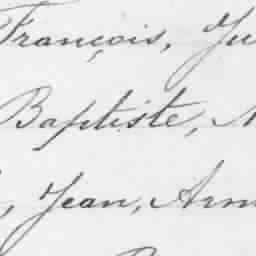 François, Ju
Baptiste,
, Jean, Arm